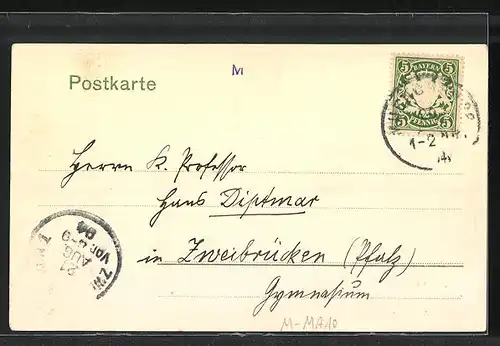 M
Postkarte
5 BAYERN 5
5 PFENNIG 5
1-2
Herrn K. Professor
Hans Diptmar
in Zweibrücken (Pfalz)
Gymnasium
21
AUG
VOR. 8-9
04
M-MA10